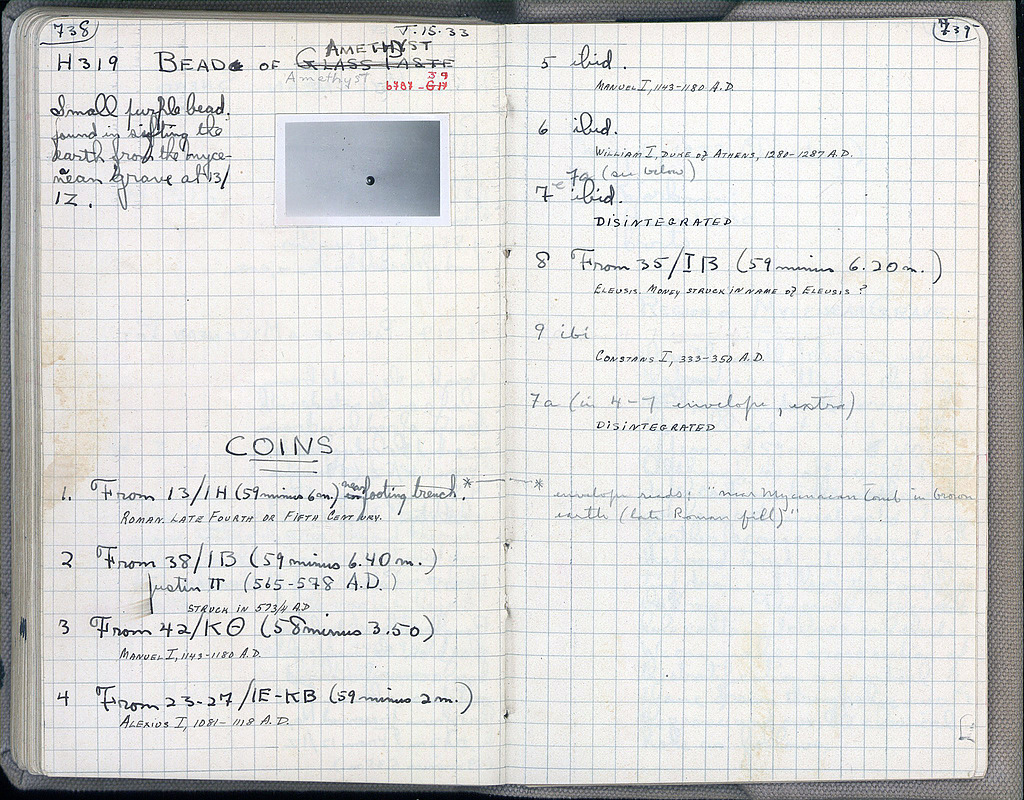 738
J.15.33
AMETHYST
H319 BEAD OF GLASS PASTE
Amethyst
39
6707-GH
Small purple bead.
found in sifting the
earth from the myce-
nean grave at 13/
IZ.
COINS
1. From 13/IH (59 minus 6m.) near in footing trench.*
ROMAN. LATE FOURTH OR FIFTH CENTURY.
2 From 38/IB (59 minus 6.40 m.)
Justin II (565-578 A.D.)
STRUCK IN 573/4 A.D
3 From 42/KΘ (58 minus 3.50)
MANUEL I, 1143-1180 A.D.
4 From 23-27/IE-KB (59 minus 2m.)
ALEXIUS I, 1081-1118 A.D.
739
5 ibid.
MANUEL I, 1143-1180 A.D.
6 ibid.
WILLIAM I, DUKE OF ATHENS, 1280-1287 A.D.
7a (see below)
7 ibid.
DISINTEGRATED
8 From 35/IB (59 minus 6.20m.)
ELEUSIS. MONEY STRUCK IN NAME OF ELEUSIS?
9 ibi
CONSTANS I, 333-350 A.D.
7a (in 4-7 envelope, extra)
DISINTEGRATED
* envelope reads: "near Mycenaean Tomb in brown
earth (late Roman fill)"